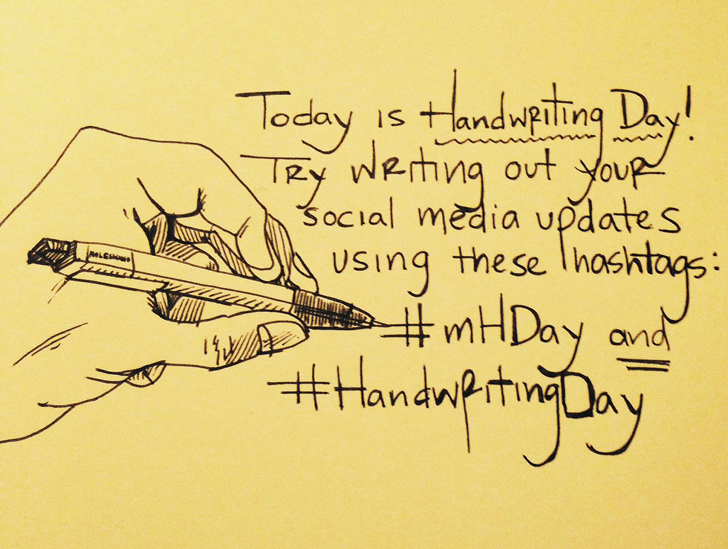 Today is Handwriting Day!
Try writing out your
social media updates
using these hashtags:
MOLESKINE
#mHDay and
#HandwritingDay